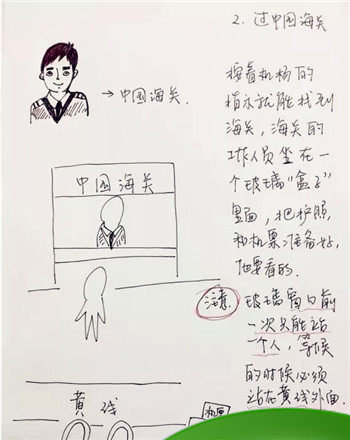 2. 过中国海关
→中国海关.
按着机场的
指示就能找到
海关，海关的
工作人员坐在一
个玻璃“盒子”
里面，把护照
和机票准备好，
他要看的.
中国海关
注意
玻璃窗口前
一次只能站
一个人，等候
的时候必须
站在黄线外面.
黄线